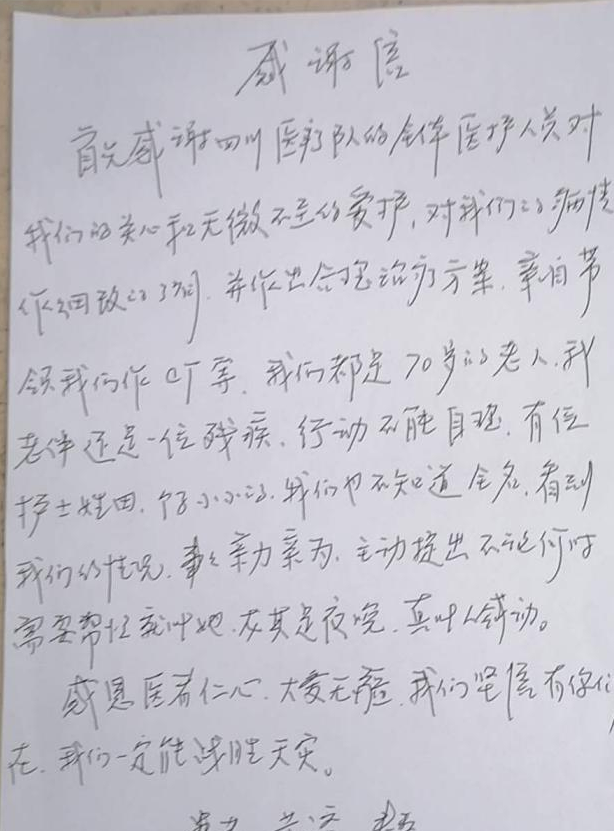 感谢信
首先感谢四川医疗队的全体医护人员对
我们的关心和无微不至的爱护,对我们的病情
作细致的了解,并作出合理治疗方案,亲自带
领我们作CT等,我们都是70岁的老人,我
老伴还是一位残疾,行动不能自理,有位
护士姓田,个子小小的,我们也不知道全名,看到
我们的情况,事事亲力亲为,主动提出不论何时
需要帮忙就叫她,尤其是夜晚,真叫人感动。
感恩医者仁心,大爱无疆,我们坚信有你们
在,我们一定能战胜天灾。